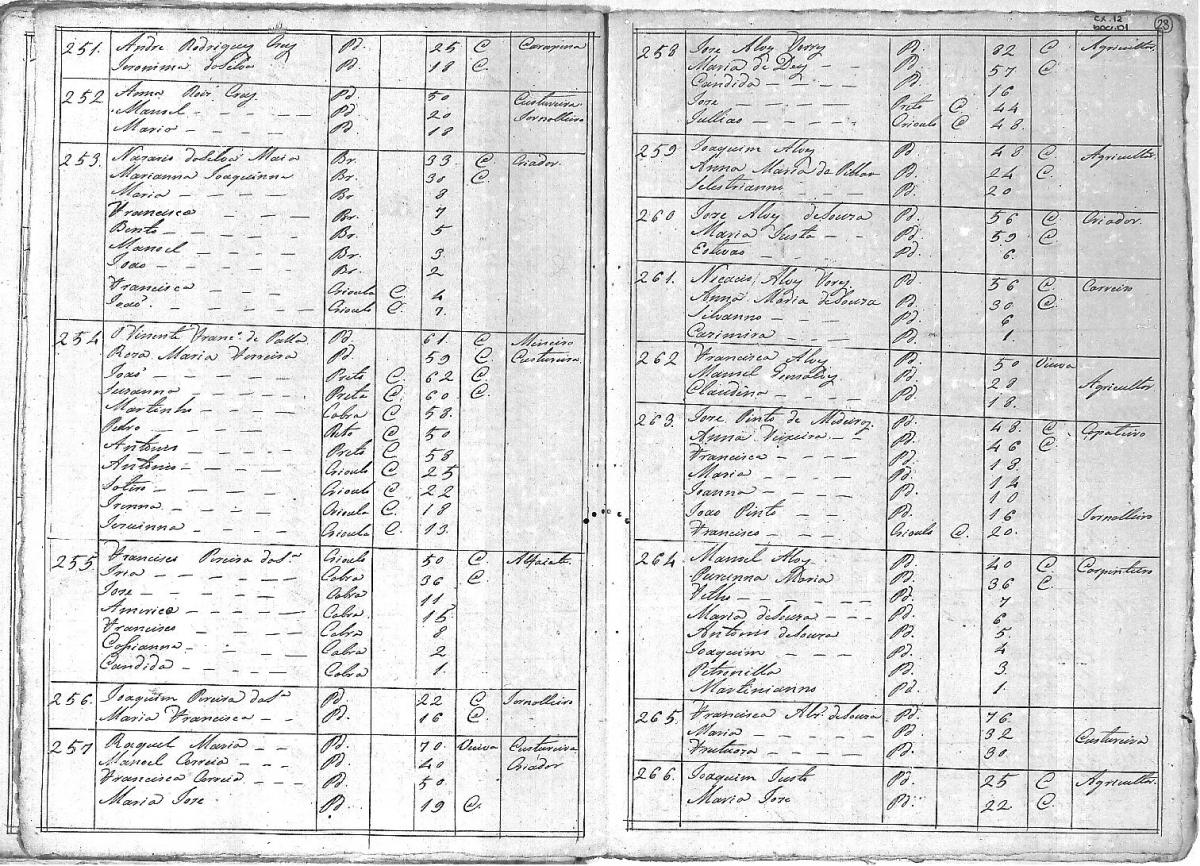 251. Andre Rodriguez Cruz Pd. 25 C Carapina
Jeronima da Silva Pd. 18 C.
252 Anna Roiz Cruz Pd 50 Custureira
Manoel Pd 20 Jornalleiro
Maria Pd. 18
253. Nazario da Silva Maia Br. 33. C. Criador.
Marianna Joaquinna Br. 30 C.
Maria Br 8
Francisca Br. 7
Bento Br. 5
Manoel Br. 3.
Joao Br. 2
Francisca Crioula C. 4
Joao Crioulo C. 7.
254. Vicente Franc.o de Paula Pd. 61. C Mineiro
Roza Maria Ferreira Pd. 59 C. Custureira
Joao Preto C. 62 C.
Suzanna Preta C. 60 C.
Martinho Cabra C 58.
Pedro Preto C 50
Antonio Preto C 58
Antonio Crioulo C. 25
Crioulo C 22
Crioula C. 18
Crioula C. 13.
255 Francisco Pereira da S.a Criolo 50 C. Alfaiate
Iria Cabra 36 C.
Jose Cabra 11
America Cabra. 15
Francisco Cabra 8
Cabra 2
Candida Cabra 1.
256. Joaquim Pereira da S.a Pd. 22 C. Jornolleiro
Maria Francisca Pd. 16 C.
257 Raquel Maria Pd. 70. Viuva Custureira
Manoel Correia Pd. 40 Criador
Francisca Correia Pd. 50.
Maria Jose Pd. 19 C.
cx. 12
DOC. 01
28
258 Jose Alvz Pd. 32 C Agricultor
Maria de Pd. 57 C
Candida Pd. 16
Jose Preto C. 44
Julliao Crioulo C 48.
259 Joaquim Alvz Pd 48 C. Agricultor
Anna Maria do Pillar Pd. 24 C.
Pd. 20
260 Jose Alvz de Souza Pd. 56 C. Criador.
Maria Justa Pd. 59 C
Estevao Pd 6.
261. Alvz Pd 56 C. Carreiro
Anna Maria de Souza Pd. 30 C.
Silvanno Pd. 6
Cazimira Pd. 1.
262 Francisca Alvz Pd. 50 Viuva
Manoel Gonsalvz Pd 28 Agricultor
Claudina Pd. 18.
263. Jose Pinto de Pd. 48. C Capateiro
Anna Teixeira Pd. 46 C
Francisca Pd. 18
Maria Pd. 14
Joanna Pd. 10
Joao Pinto Pd. 16 Jornolleiro
Francisco Crioulo C. 20.
264 Manoel Alvz Pd 40 C. Carpinteiro
Maria Pd. 36 C.
Pd. 7
Maria de Souza Pd. 6
Antonio de Souza Pd. 5.
Joaquim Pd. 4
Petronilla Pd. 3
Martinianno Pd. 1.
265. Francisca Alv. de Souza Pd. 76.
Maria Pd. 32 Custureira
Frutuoza Pd. 30.
266. Joaquim Justo Pd. 25 C Agricultor.
Maria Jose Pd. 22 C.